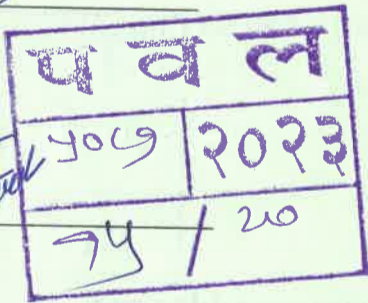 प व ल
५०७ २०२३
१५ / २०